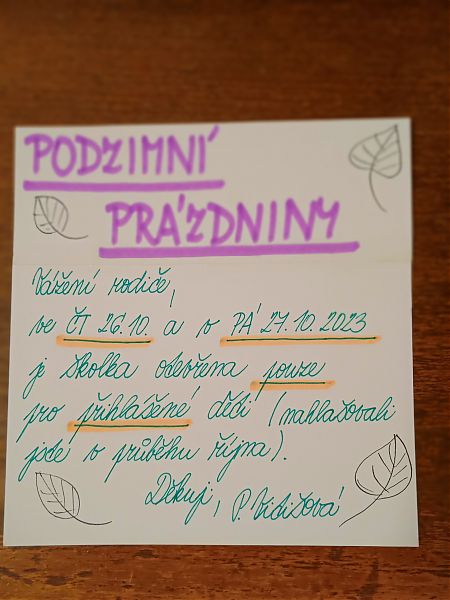 PODZIMNÍ
PRÁZDNINY
Vážení rodiče,
ve ČT 26.10. a v PÁ 27.10.2023
je školka otevřena pouze
pro přihlášené děti (nahlašovali
jste v průběhu října).
Děkuji, P. Vidišová